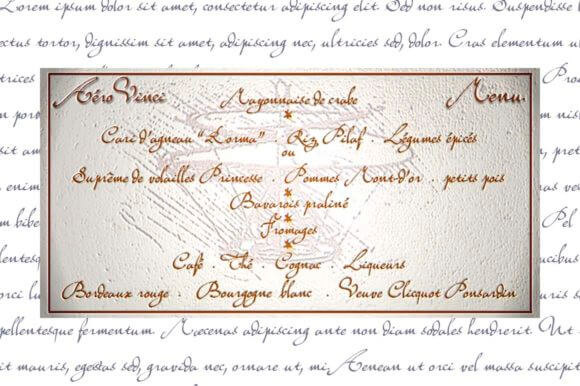 Lorem ipsum dolor sit amet, consectetur adipiscing elit. Sed non risus. Suspendisse
ectus tortor, dignissim sit amet, adipiscing nec, ultricies sed, dolor. Cras elementum
trices
Aéro Vinci Mayonnaise de crabe Menu
Cari d'agneau "Lorma" . Riz Pilaf . Légumes épicés
ou
Suprème de volailles Princesse . Pommes Mont-d'or . petits pois
Bavarois praliné
Fromages
Café . Thé . Cognac . Liqueurs
Bordeaux rouge . Bourgogne blanc . Veuve Clicquot Ponsardin
pellentesque fermentum. Mæcenas adipiscing ante non diam sodales hendrerit. Ut
it mauris, egestas sed, gravida nec, ornare ut, mi. Aenean ut orci vel massa suscipit